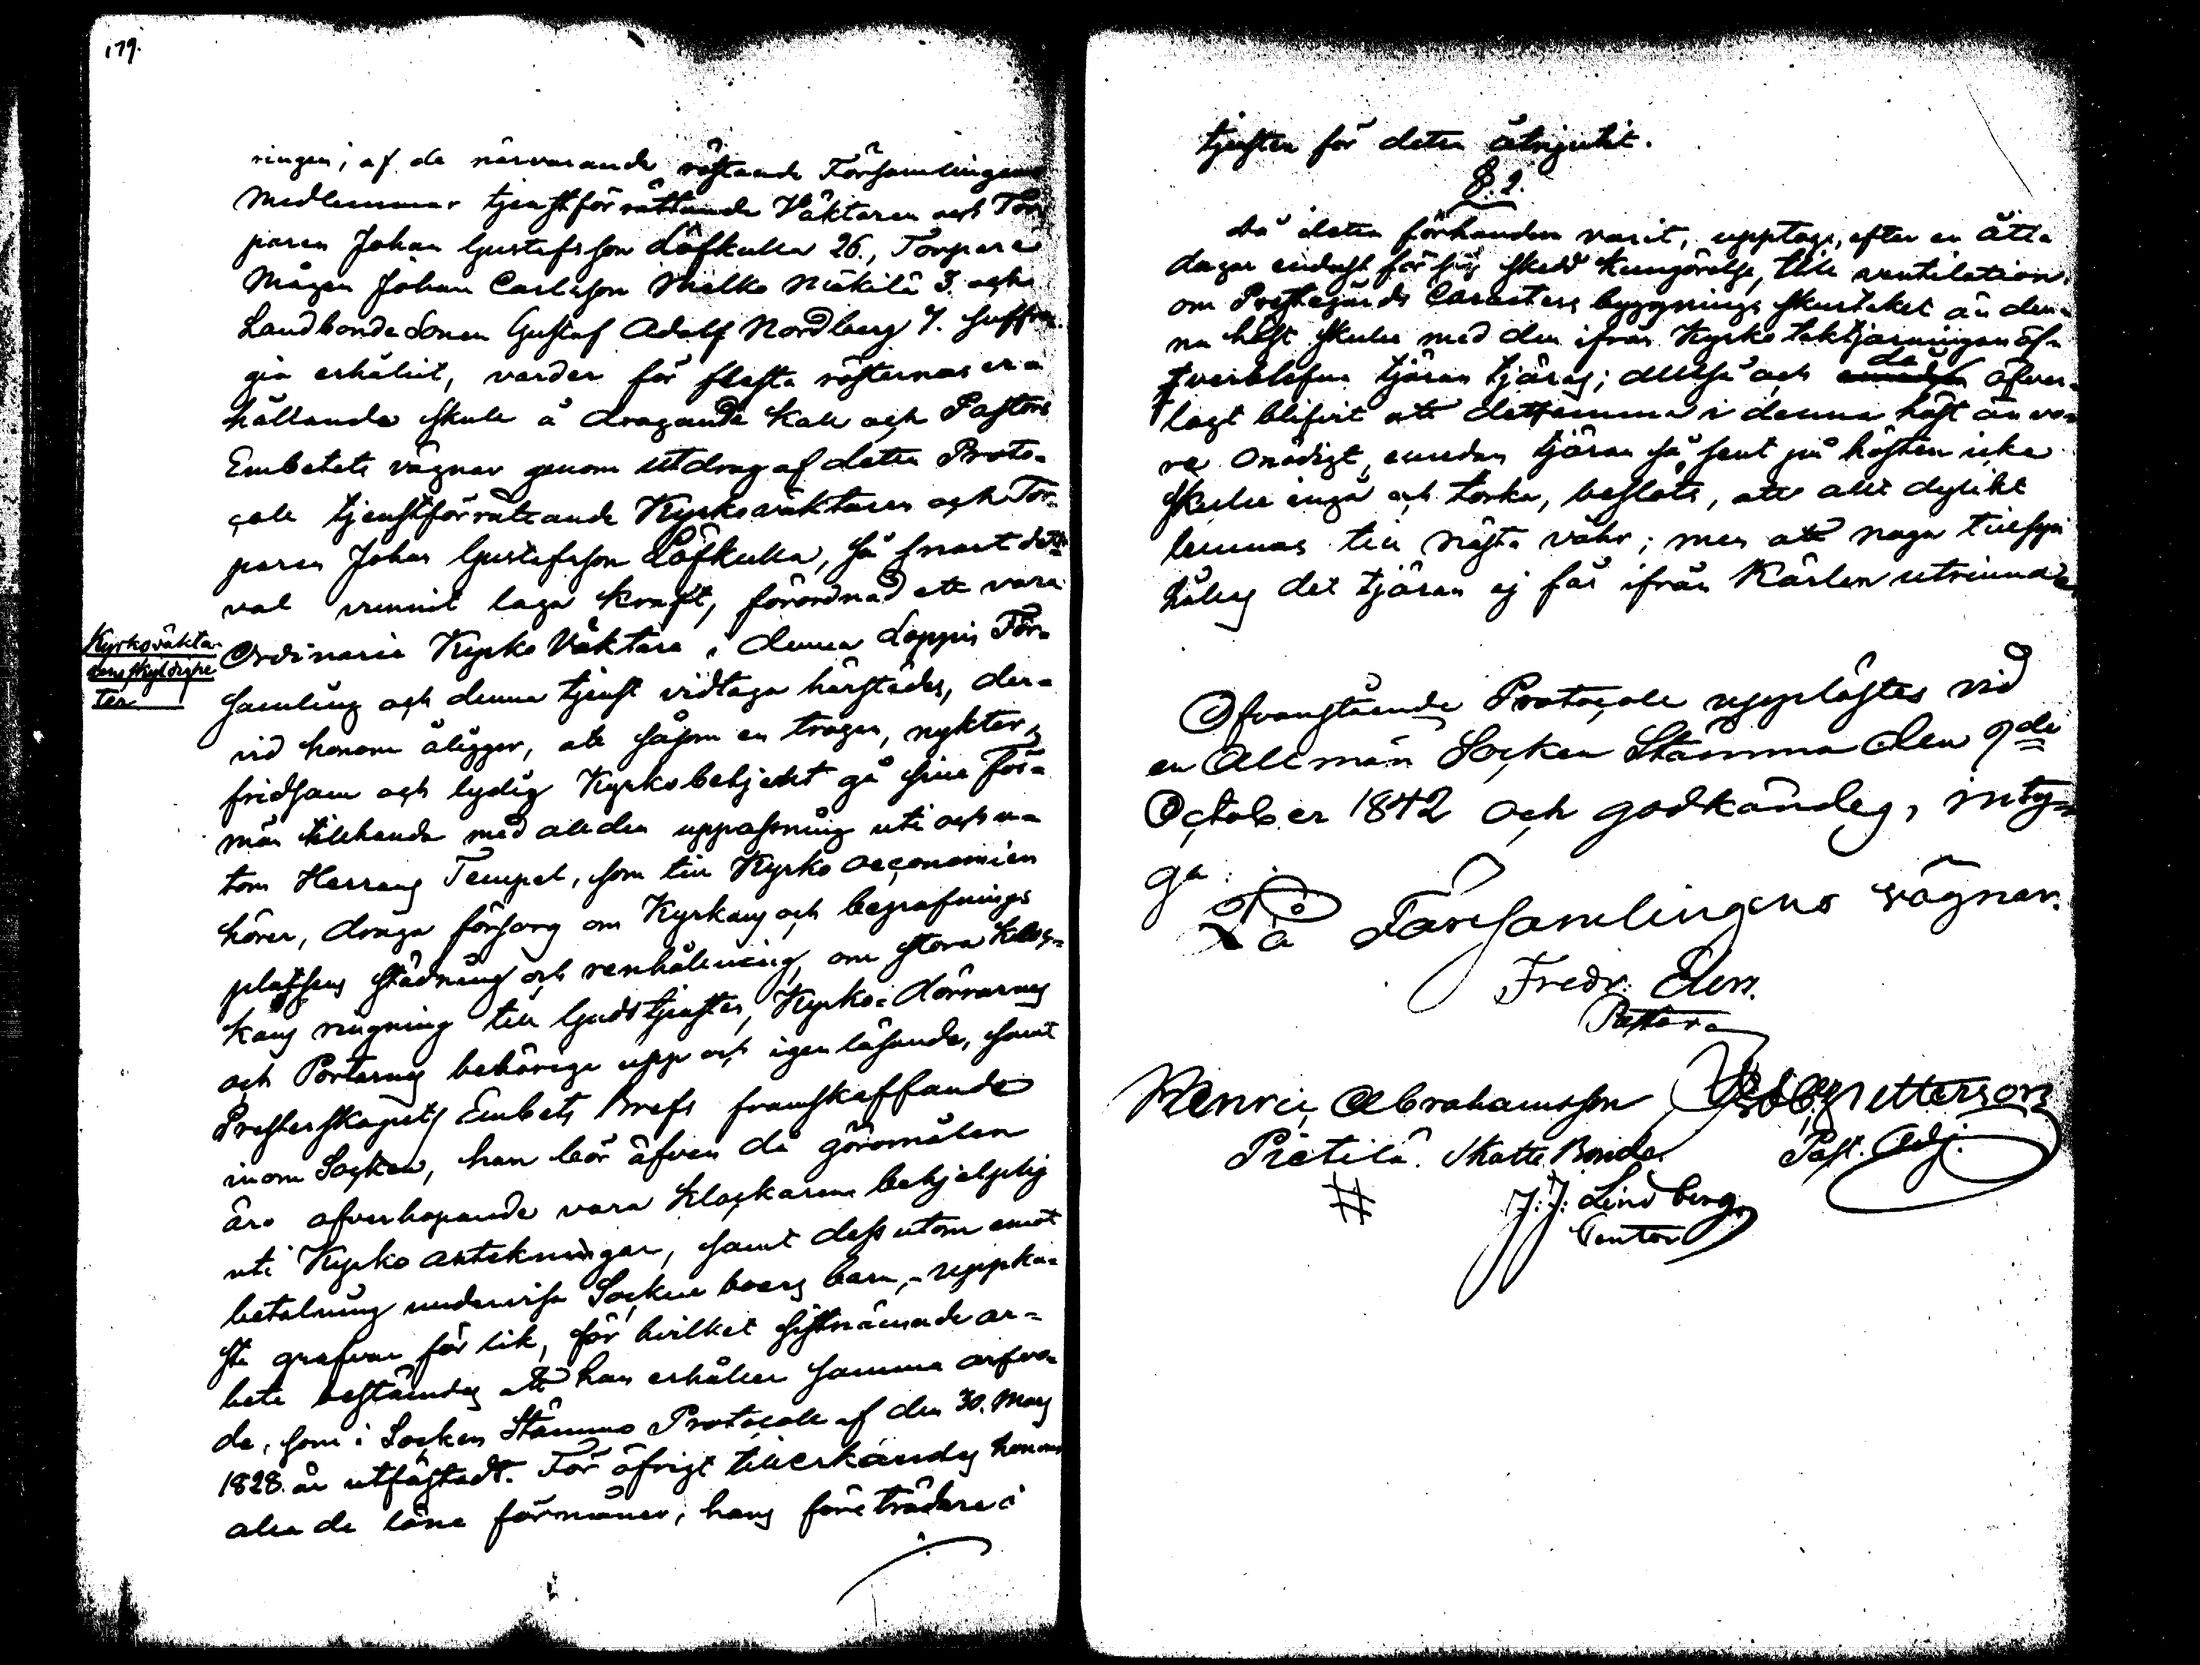 179.
ringen, af de närvarande röstande Församlingens
Medlemmar tjenstförrättande Väktaren och Tor-
paren Johan Gustafsson Löfkulla 26., Torpare
Mågen Johan Carlsson Mielko Näkilä 3. och
Landbonde Sonen Gustaf Adolf Nordberg 7. suffra-
gia erhållit, varder för flesta rösternas er-
hållande skull å dragande kall och Pastors
Embetets vägnar genom utdrag af detta Proto-
coll tjenstförrättande Kyrkoväktaren och Tor-
paren Johan Gustafsson Löfkulla, så snart detta
val vunnit laga kraft, förordnad att vara
Kyrkoväkta-
rens skyldighe
ter
Ordinarie Kyrko Väktare i denna Loppis För-
samling och denna tjenst vidtaga härstädes, der-
vid honom åligger, att såsom en trogen, nykter,
fridsam och lydig Kyrkobetjent gå sine För-
män tillhanda med all den uppassning uti och u-
tom Herrans Tempel, som till Kyrko oeconomien
hörer, draga försorg om Kyrkans och begrafnings
platsens städning och renhållning, om stora kloc-
kans ringning till Gudstjenster, Kyrko-dörrarnes
och Portarnes behöriga upp och igen låsande, samt
Presterskapets Embets Brefs framskaffande
inom Socken, han bör äfven då göromålen
äro öfverhopande vara Klockaren behjelplig
uti Kyrko antekningar, samt dess utom emot
betalning undervisa Sockne boers barn, - uppka-
sta grafvar för lik, för hvilket sistnämnde ar-
bete bestämdes att han erhåller samma arfvo-
de, som i Socken Stämmo Protocoll af den 30. Mars
1828. är utfästadt. För öfrigt tillerkändes honom
alla de löne förmåner, hans företrädare i
tjensten för detta åtnjutit.
§. 2.
då detta förhanden varit, upptogs, efter en åtta
dagar endast för sig skedd kungörelse, till ventilation,
om Prestegårds Caracters byggnings skurtaket än den-
na höst skulle med den ifrån Kyrko taktjärningen öf-
verblefne tjäran tjäras; alltså och då öfver-
lagt blifvit att detsamma i denna höst än vo-
re onödigt, emedan tjäran så sent på hösten icke
skulle ingå och torka, beslöts, att allt dylikt
lemnas till nästa vår; men att noga tillsyn
hålles det tjäran ej får ifrån Kärlen utrinna.
Ofvanstående Protocoll upplästes vid
en Allmän Socken Stämma den 9de
October 1842 och godkändes, inty-
ga:
På Församlingens vägnar.
Fredr: Elers.
Pastor
Henric Abrahamsson
Petterson
Pietilä. Skatte Bonde.
Past. Adj.
J: J: Lindberg
Cantor